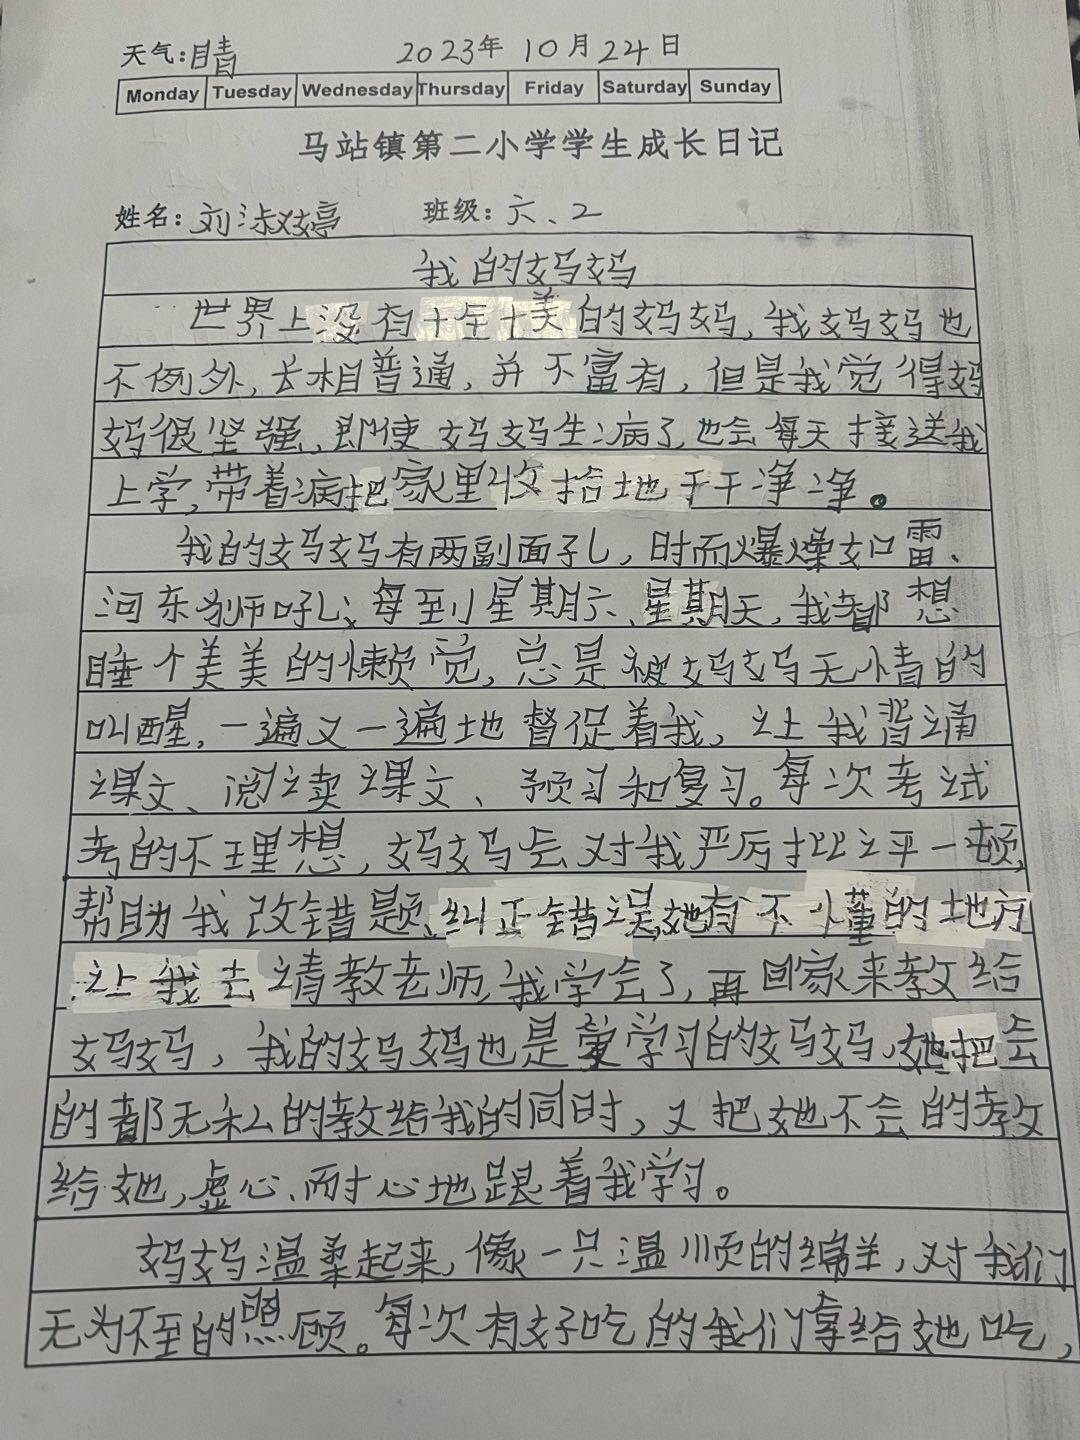 天气:晴 2023年 10月 24日
Monday Tuesday Wednesday Thursday Friday Saturday Sunday
马站镇第二小学学生成长日记
姓名:刘淑婷 班级:六、2
我的妈妈
世界上没有十全十美的妈妈,我妈妈也
不例外,长相普通,并不富有,但是我觉得妈
妈很坚强,即使妈妈生病了,也会每天接送我
上学,带着病把家里收拾地干干净净。
我的妈妈有两副面孔,时而爆燥如雷、
河东狮吼,每到星期六、星期天,我都想
睡个美美的懒觉,总是被妈妈无情的
叫醒,一遍又一遍地督促着我,让我背诵
课文、阅读课文、预习和复习。每次考试
考的不理想,妈妈会对我严厉批评一顿,
帮助我改错题、纠正错误,她有不懂的地方
让我去请教老师,我学会了,再回家来教给
妈妈,我的妈妈也是爱学习的妈妈,她把会
的都无私的教给我的同时,又把她不会的教
给她,虚心、耐心地跟着我学习。
妈妈温柔起来,像一只温顺的绵羊,对我们
无为不至的照顾。每次有好吃的我们拿给她吃,